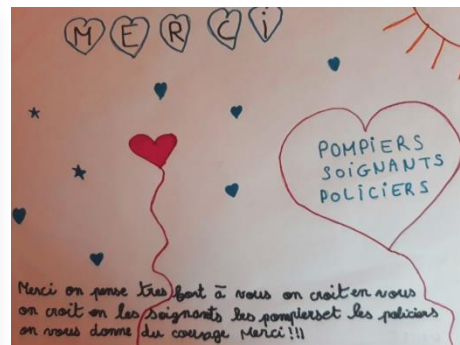 MERCI
POMPIERS
SOIGNANTS
POLICIERS
Merci on pense tres fort à vous on croit en vous
on croit en les soignants les pompierset les policiers
on vous donne du courage Merci!!!